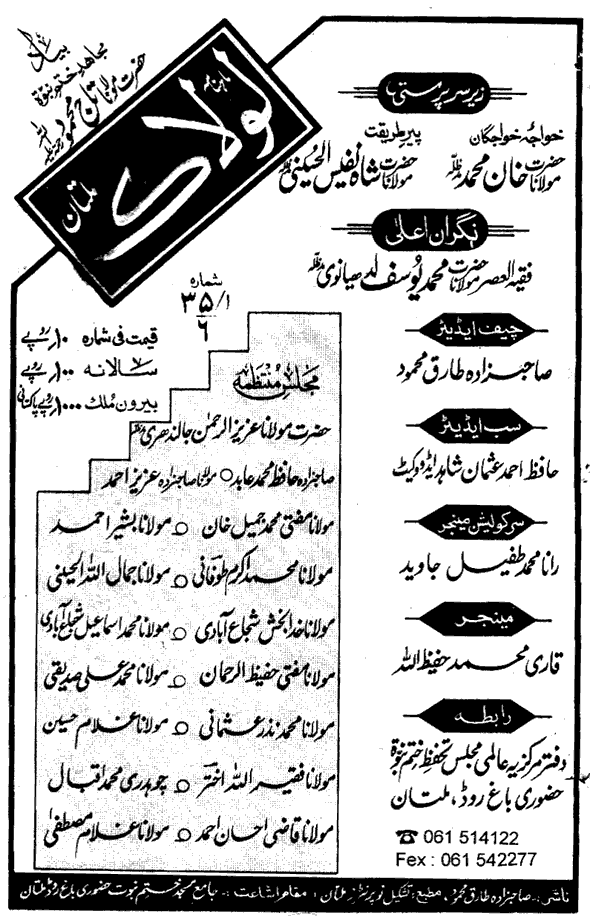 بیاد
مجاہد ختم نبوۃ
حضرت مولانا تاج محمود رحمۃ اللہ علیہ
ماہنامہ
لولاک
ملتان
زیر سرپرستی
خواجۂ خواجگان
حضرت مولانا خان محمد مدظلہ
پیر طریقت
حضرت مولانا شاہ نفیس الحسینی مدظلہ
نگران اعلیٰ
فقیہ العصر حضرت مولانا محمد یوسف لدھیانوی مدظلہ
شمارہ
۳۵/۱
۶
قیمت فی شمارہ ۱۰ روپے
سالانہ ۱۰۰ روپے
بیرون ملک ۱۰۰۰ روپے پاکستانی
چیف ایڈیٹر
صاحبزادہ طارق محمود
سب ایڈیٹر
حافظ احمد عثمان شاہد ایڈووکیٹ
سرکولیشن مینجر
رانا محمد طفیل جاوید
مینجر
قاری محمد حفیظ اللہ
رابطہ
دفتر مرکزیہ عالمی مجلس تحفظ ختم نبوۃ
حضوری باغ روڈ، ملتان
☎ 061 514122
Fex : 061 542277
مجلس منتظمہ
حضرت مولانا عزیز الرحمٰن جالندھری مدظلہ
صاحبزادہ حافظ محمد عابد ○ مولانا صاحبزادہ عزیز احمد
مولانا مفتی محمد جمیل خان ○ مولانا بشیر احمد
مولانا محمد اکرم طوفانی ○ مولانا جمال اللہ الحسینی
مولانا خدا بخش شجاع آبادی ○ مولانا محمد اسماعیل شجاع آبادی
مولانا مفتی حفیظ الرحمان ○ مولانا محمد علی صدیقی
مولانا محمد نذر عثمانی ○ مولانا غلام حسین
مولانا فقیر اللہ اختر ○ چوہدری محمد اقبال
مولانا قاضی احسان احمد ○ مولانا غلام مصطفیٰ
ناشر :۔ صاحبزادہ طارق محمود، مطبع: تشکیل نو پرنٹرز ملتان، مقام اشاعت :۔ جامع مسجد ختم نبوت حضوری باغ روڈ ملتان